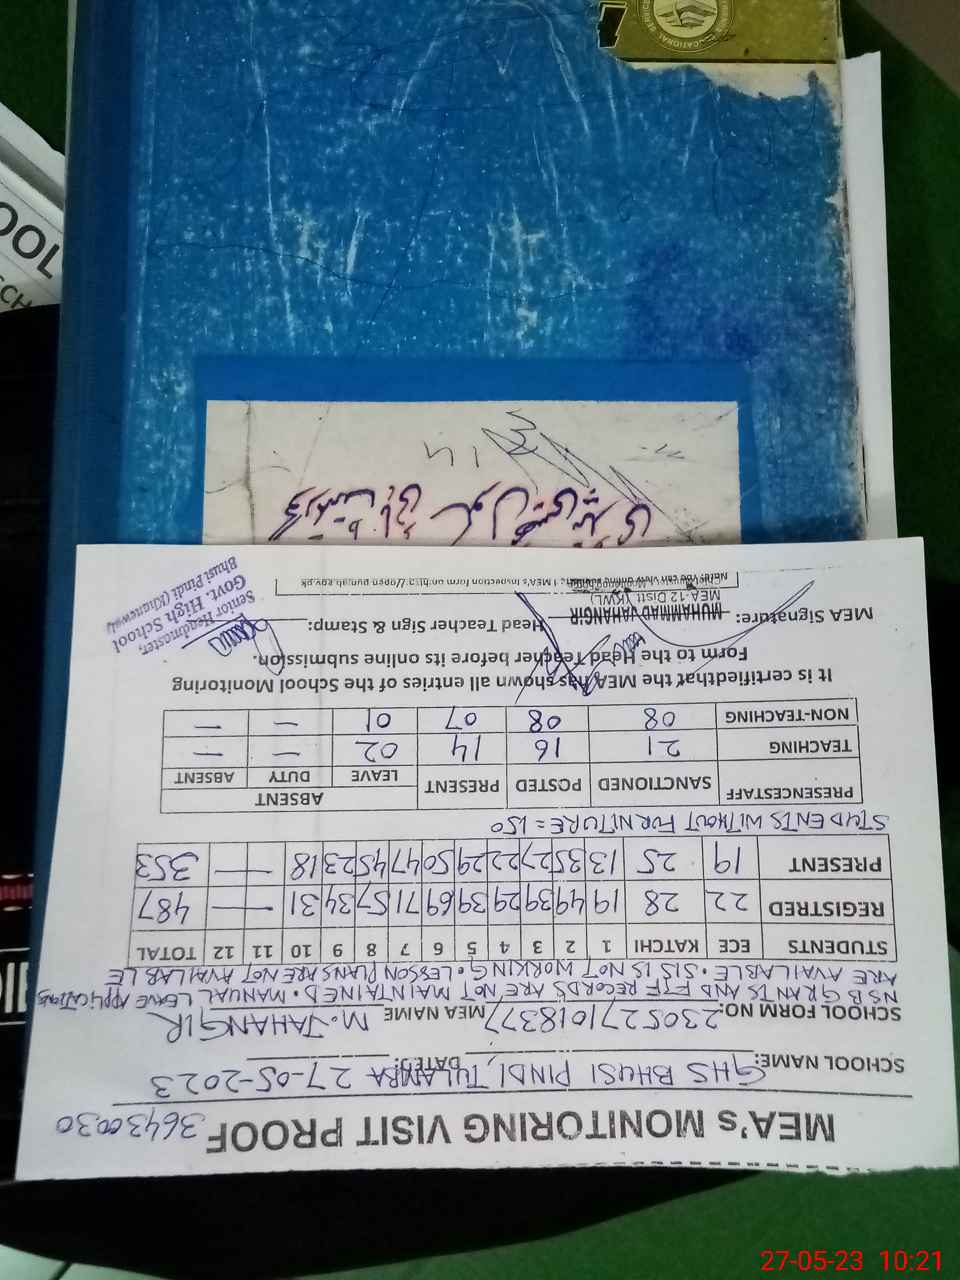 MEA's MONITORING VISIT PROOF 36430030
SCHOOL NAME: GHS BHUSI PINDI, TULAMBA DATED: 27-05-2023
SCHOOL FORM NO: 2305271018377 MEA NAME M. JAHANGIR
NSB GRANTS AND FTF RECORDS ARE NOT MAINTAINED. MANUAL LEAVE APPLICATIONS
ARE AVAILABLE. SIS IS NOT WORKING. LESSON PLANS ARE NOT AVAILABLE
STUDENTS ECE KATCHI 1 2 3 4 5 6 7 8 9 10 11 12 TOTAL
REGISTRED 22 28 19 49 39 29 39 69 71 57 34 31 — — 487
PRESENT 19 25 13 35 27 22 29 50 47 45 23 18 — — 353
STUDENTS WITHOUT FURNITURE = 150
PRESENCESTAFF SANCTIONED POSTED PRESENT ABSENT
LEAVE DUTY ABSENT
TEACHING 21 16 14 02 — —
NON-TEACHING 08 08 07 01 — —
It is certifiedthat the MEA has shown all entries of the School Monitoring
Form to the Head Teacher before its online submission.
MEA Signature: MUHAMMAD JAHANGIR Head Teacher Sign & Stamp:
MEA-12 Distt (KWL)
Senior Headmaster,
Govt. High School
Bhusi Pindi (Khanewal)
OOL
SCH
14
27-05-23 10:21